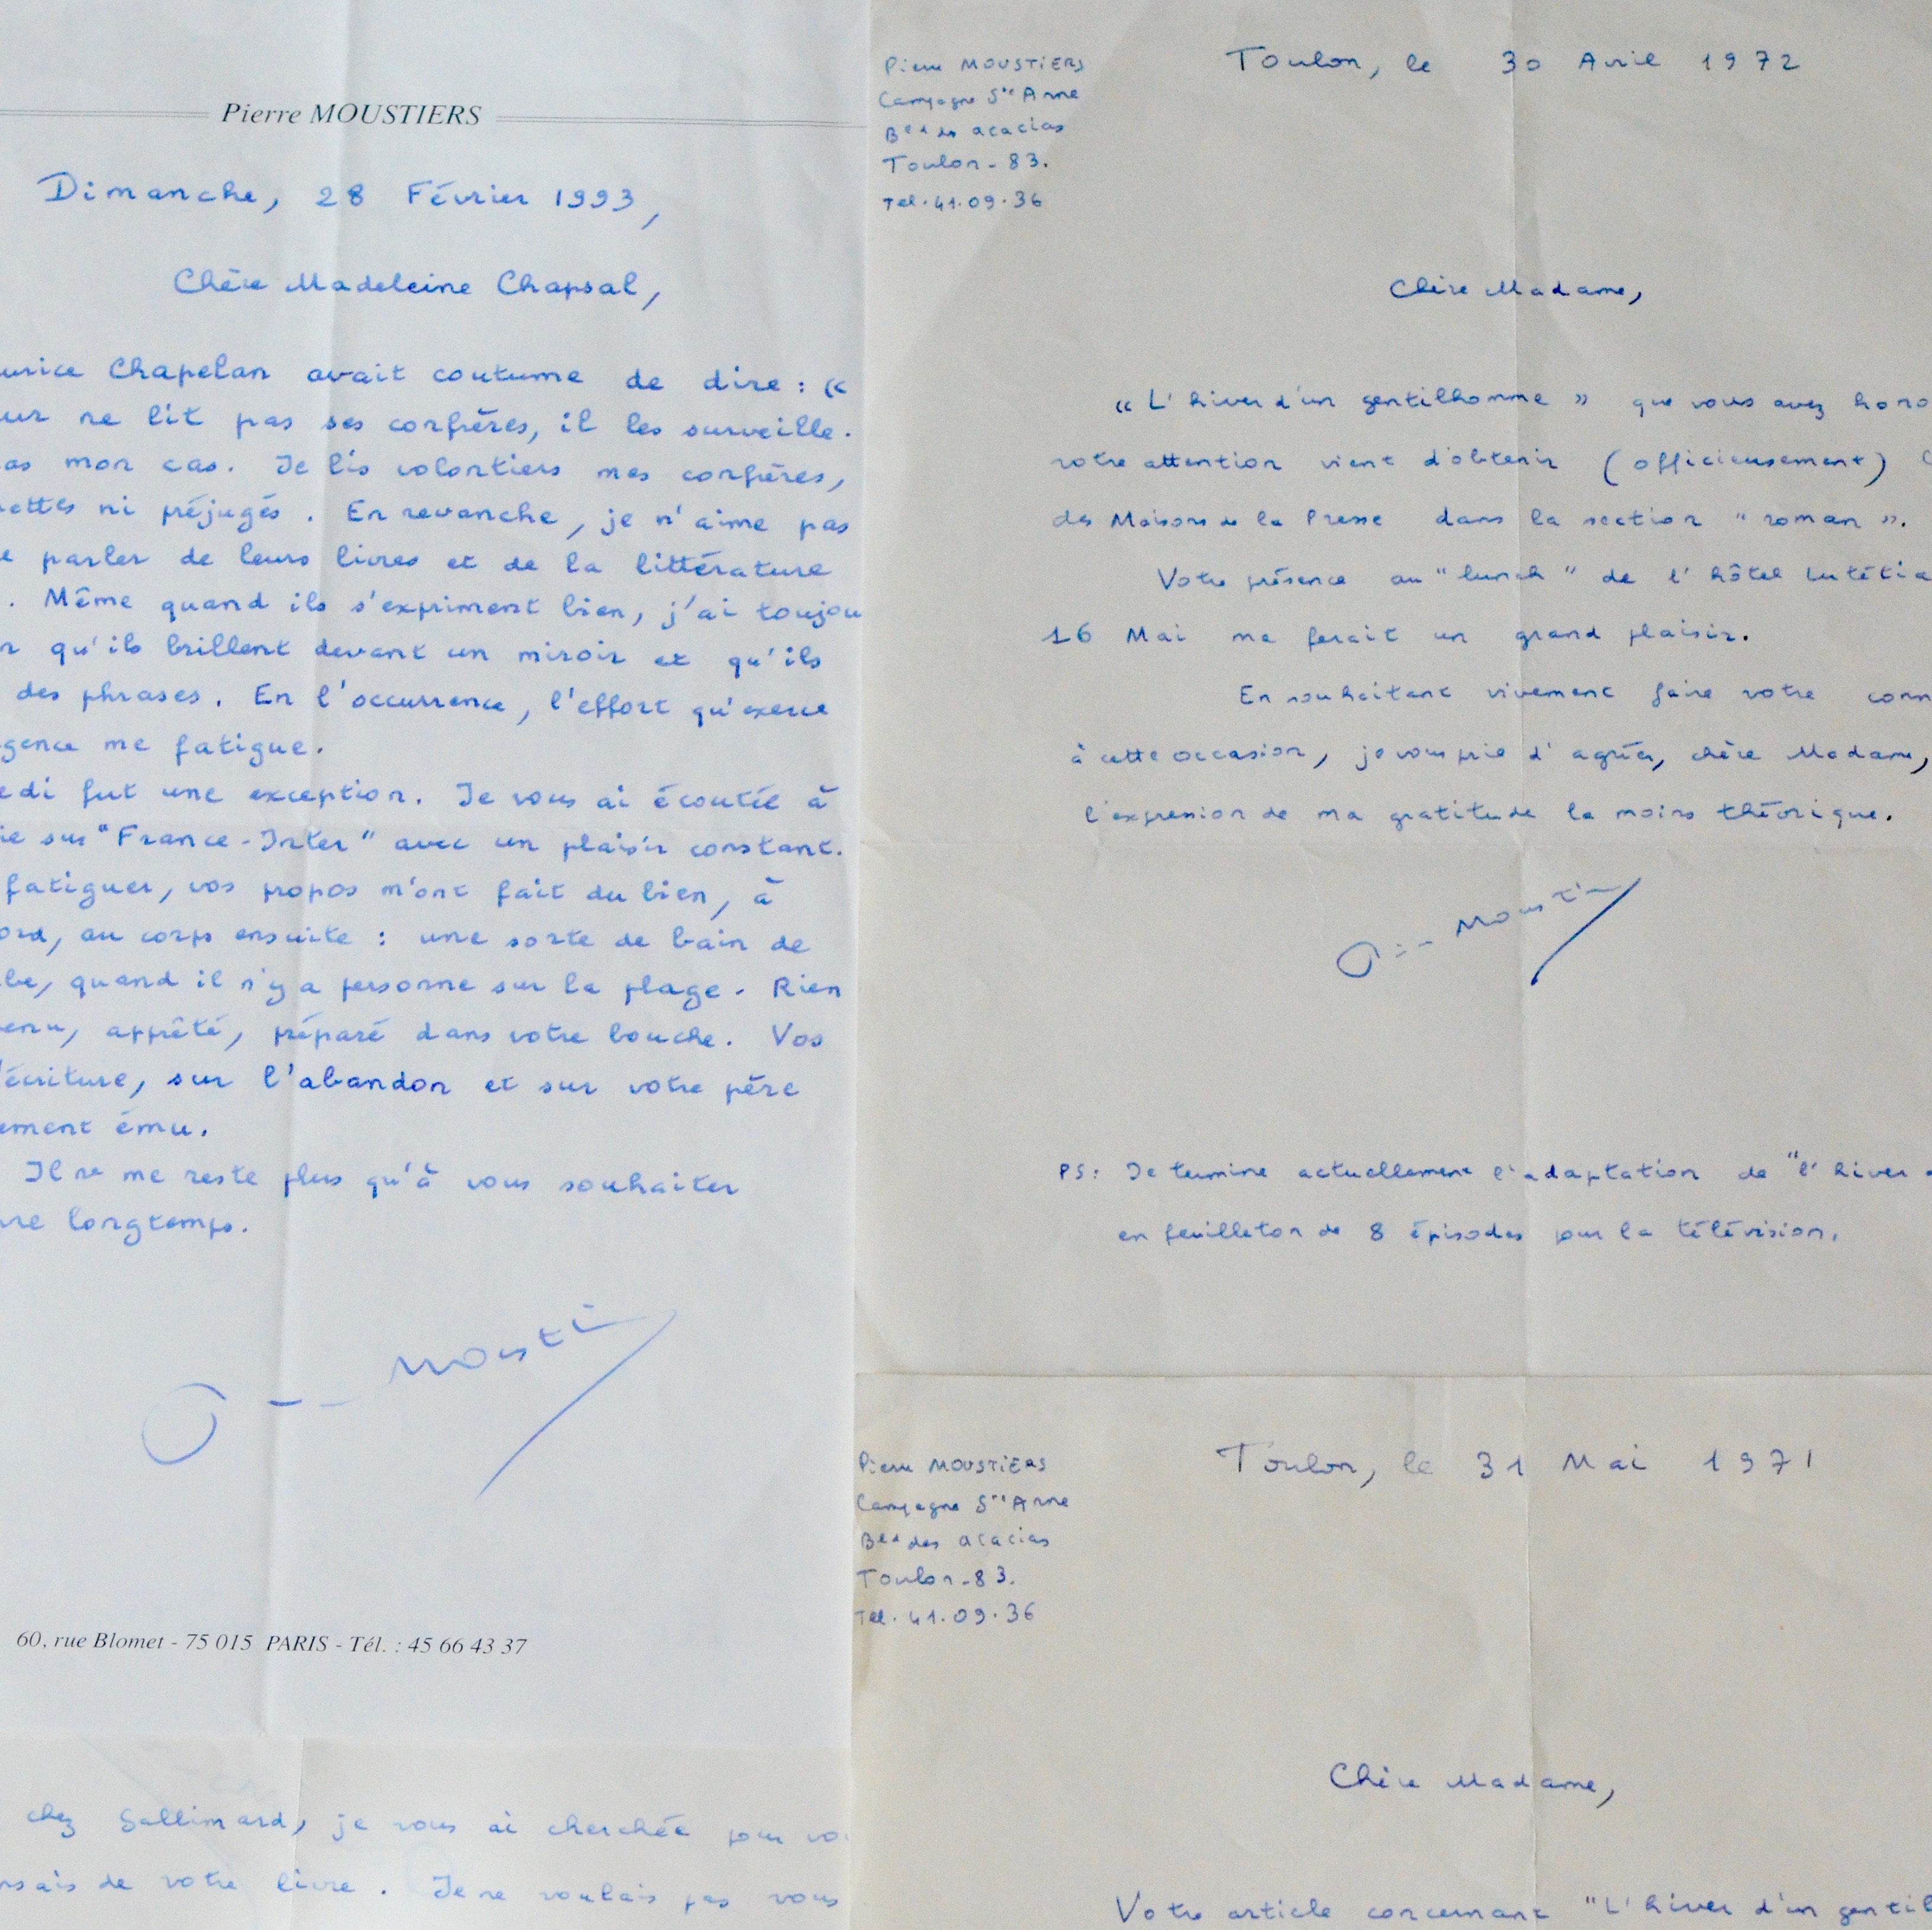 Pierre MOUSTIERS
Dimanche, 28 Février 1993,
Chère Madeleine Chapsal,
urice Chapelan avait coutume de dire : «
ur ne lit pas ses confrères, il les surveille.
as mon cas. Je lis volontiers mes confrères,
ettes ni préjugés. En revanche, je n'aime pas
e parler de leurs livres et de la littérature
. Même quand ils s'expriment bien, j'ai toujou
r qu'ils brillent devant un miroir et qu'ils
des phrases. En l'occurrence, l'effort qu'exerce
gence me fatigue.
edi fut une exception. Je vous ai écoutée à
ie sur "France-Inter" avec un plaisir constant.
fatiguer, vos propos m'ont fait du bien, à
ord, au corps ensuite : une sorte de bain de
be, quand il n'y a personne sur la plage. Rien
enu, apprêté, préparé dans votre bouche. Vos
'écriture, sur l'abandon et sur votre père
ement ému.
Il ne me reste plus qu'à vous souhaiter
vre longtemps.
Mousti
60, rue Blomet - 75 015 PARIS - Tél. : 45 66 43 37
chez Gallimard, je vous ai cherchée pour vo
nsais de votre livre. Je ne voulais pas vous
Pierre MOUSTIERS
Campagne Ste Anne
Bd des acacias
Toulon - 83.
Tel. 41.09.36
Toulon, le 30 Avril 1972
Chère Madame,
« L'hiver d'un gentilhomme » que vous avez hono
votre attention vient d'obtenir (officieusement)
des Maisons de la Presse dans la section "roman".
Votre présence au "lunch" de l'hôtel Lutétia
16 Mai me ferait un grand plaisir.
En souhaitant vivement faire votre conn
à cette occasion, je vous prie d'agréer, chère Madame,
l'expression de ma gratitude la moins théorique.
Mousti
PS: Je termine actuellement l'adaptation de "l'hiver
en feuilleton de 8 épisodes pour la télévision.
Pierre MOUSTIERS
Campagne Ste Anne
Bd des acacias
Toulon - 83.
Tel. 41.09.36
Toulon, le 31 Mai 1971
Chère Madame,
Votre article concernant "L'hiver d'un gentil